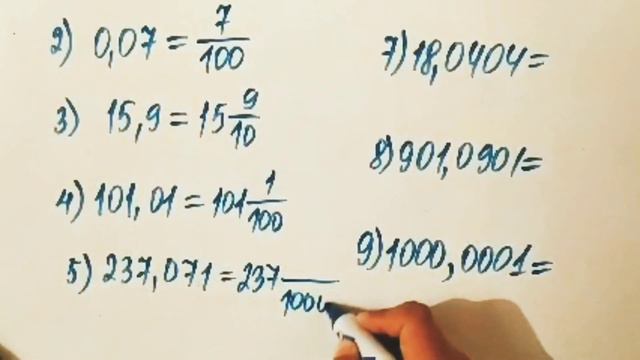 2) 0,07 = 7/100
3) 15,9 = 15 9/10
4) 101,01 = 101 1/100
5) 237,071 = 237 /100
7) 18,0404 =
8) 901,0901 =
9) 1000,0001 =